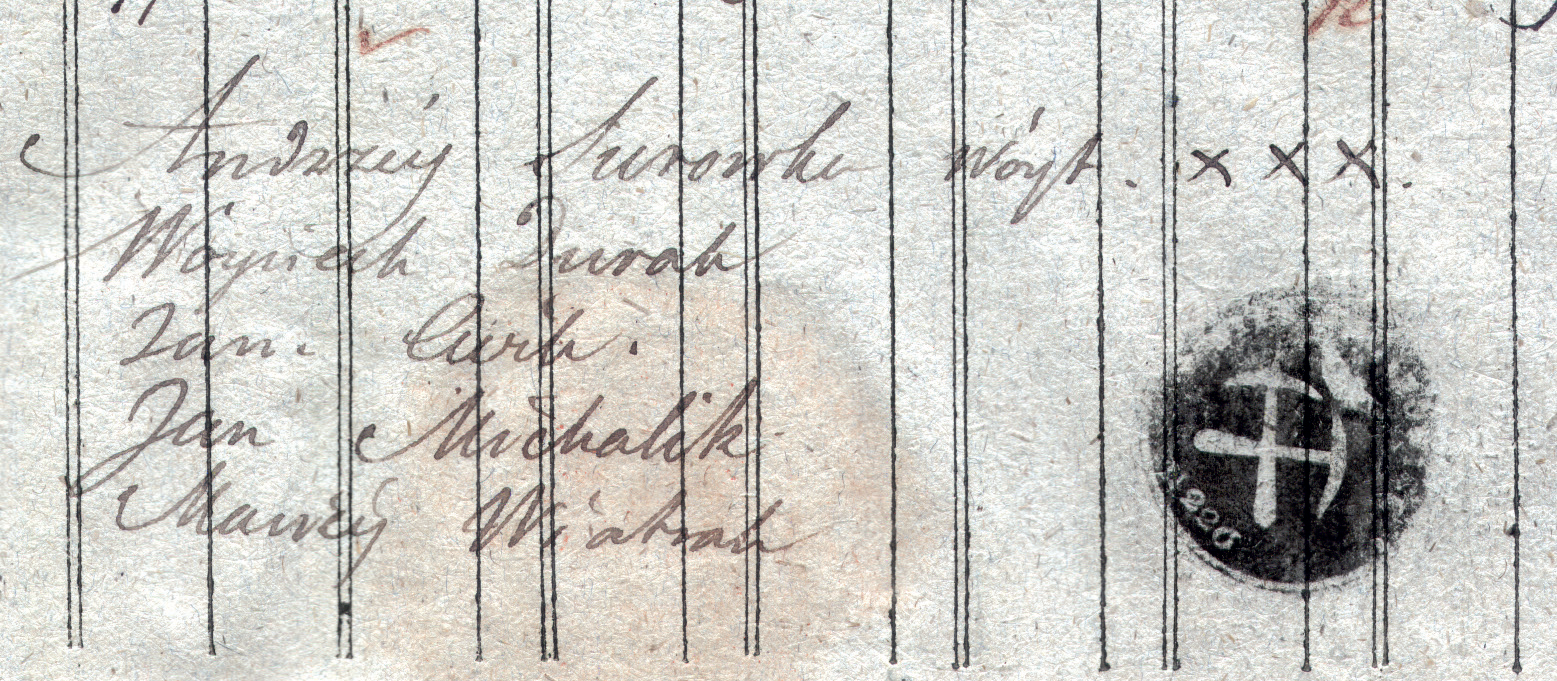 Andrzey Surowka Wóyt. x x x.
Woyciech Durak
Jan.
Jan Michalik
Maciey Wiatrak